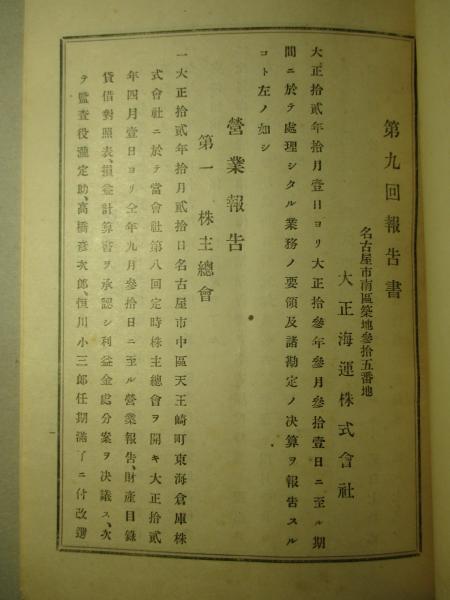 第九回報告書
名古屋市南區築地參拾五番地
大正海運株式會社
大正拾貳年拾月壹日ヨリ大正拾參年參月參拾壹日ニ至ル期
間ニ於テ處理シタル業務ノ要領及諸勘定ノ決算ヲ報告スル
コト左ノ如シ
營業報告
第一 株主總會
一大正拾貳年拾月貳拾日名古屋市中區天王崎町東海倉庫株
式會社ニ於テ當會社第八回定時株主總會ヲ開キ大正拾貳
年四月壹日ヨリ仝年九月參拾日ニ至ル營業報告、財產目錄
貸借對照表、損益計算書ヲ承認シ利益金處分案ヲ決議ス、次
テ監査役瀧定助、高橋彥次郎、恒川小三郎任期滿了ニ付改選